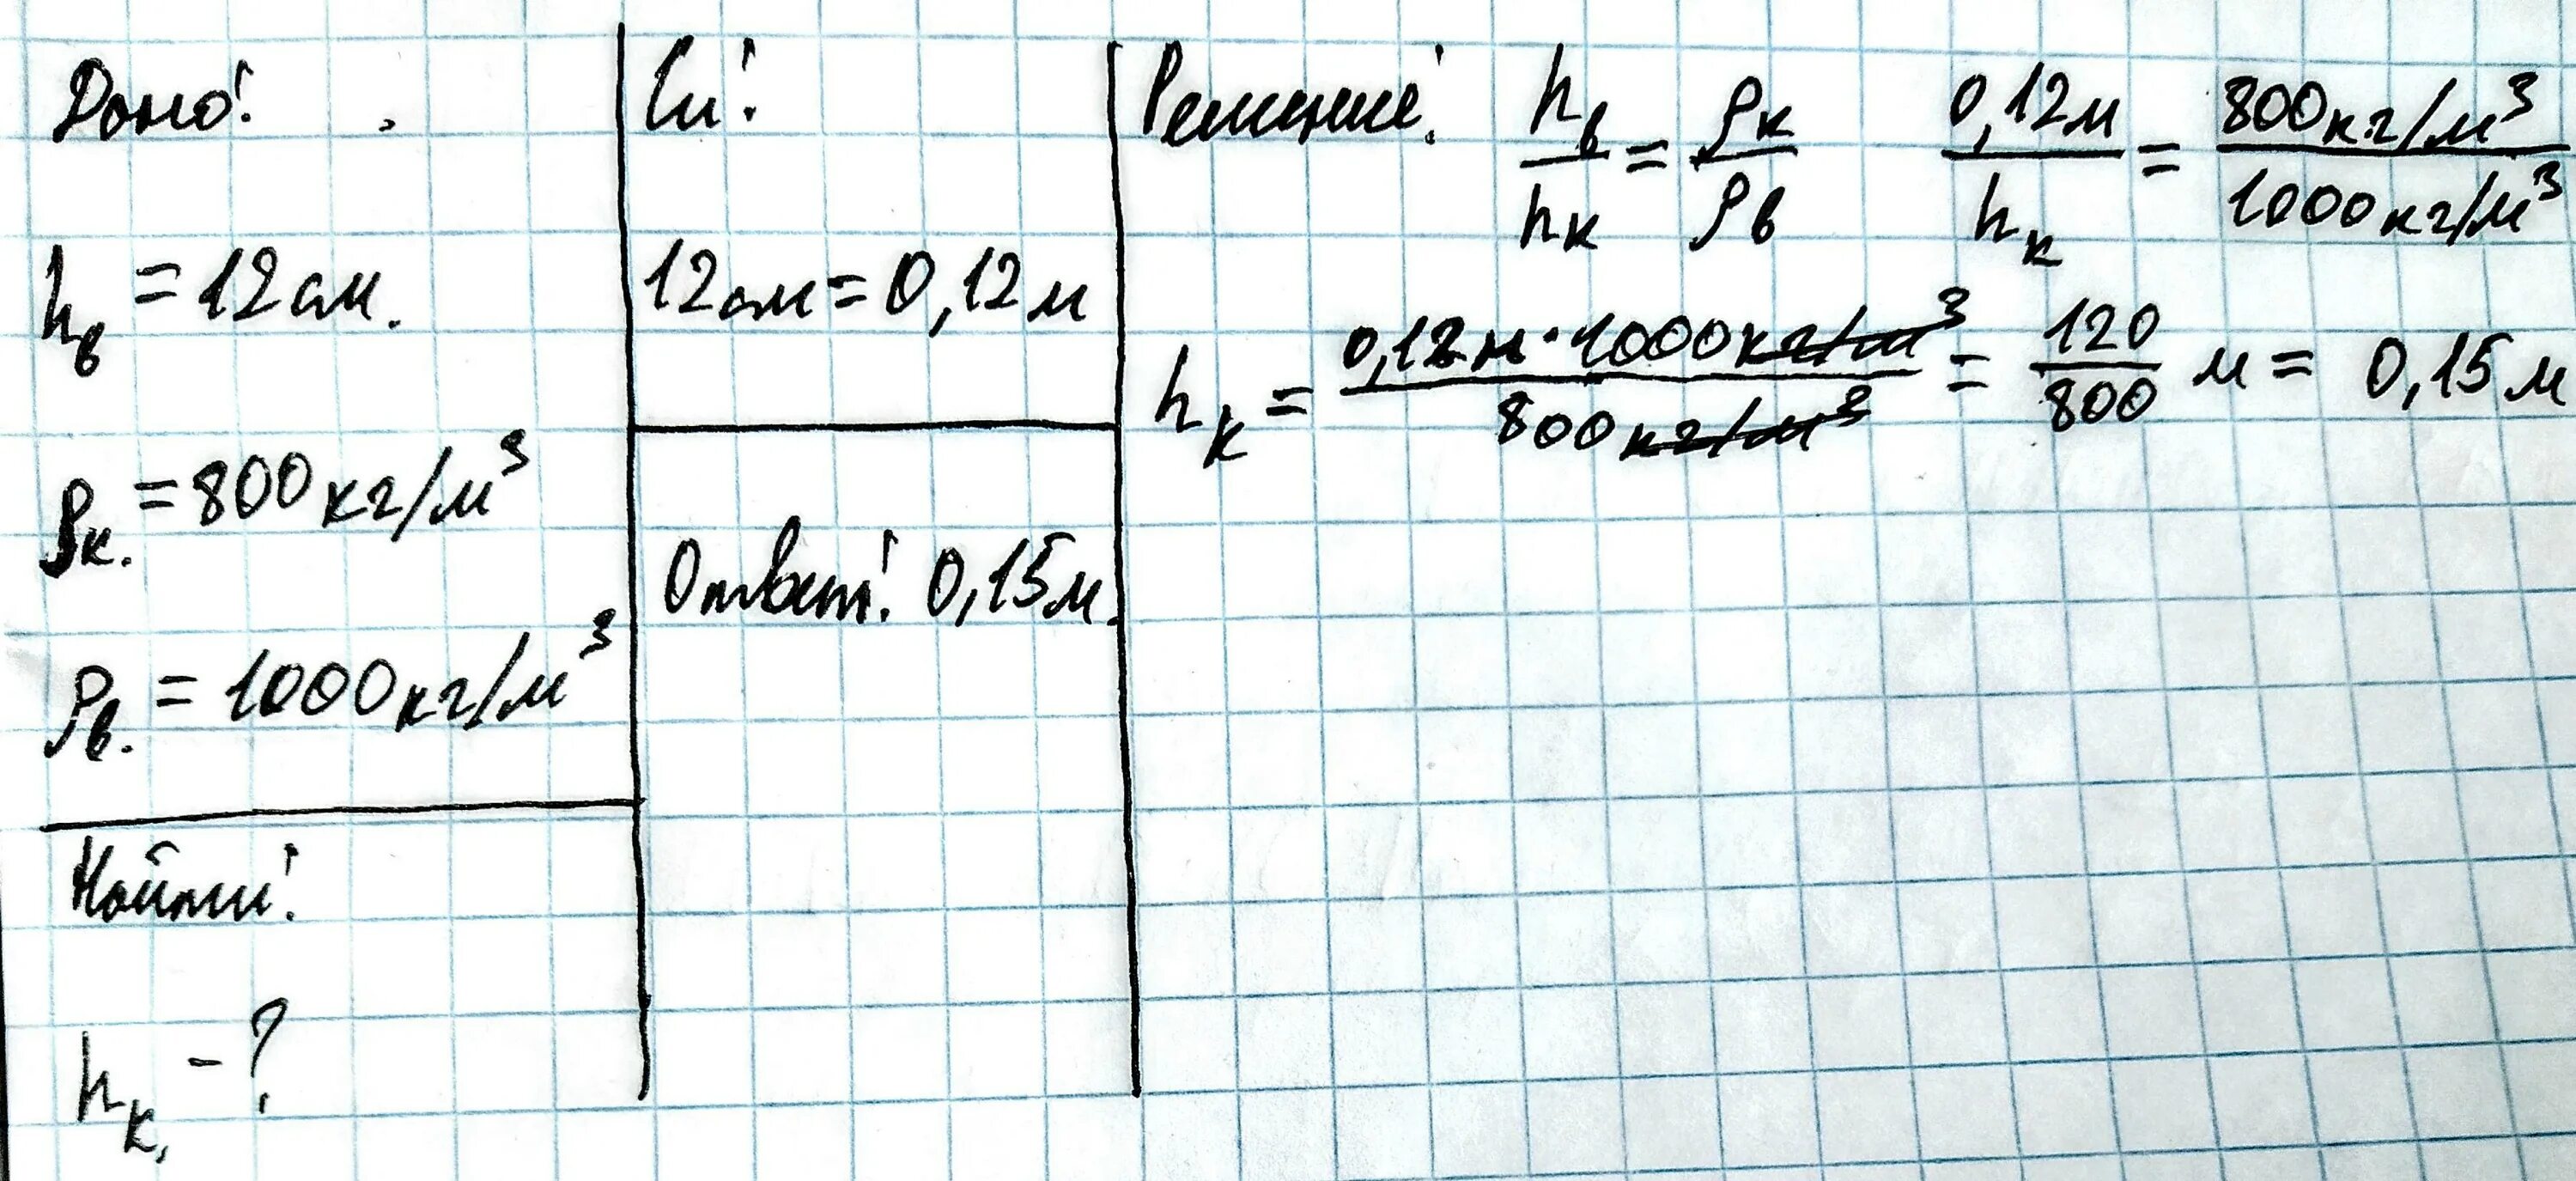 Дано:
h_в = 12 см.
ρ_к. = 800 кг/м³
ρ_в. = 1000 кг/м³
Найти:
h_к, - ?
Си:
12 см = 0,12 м
Ответ: 0,15 м.
Решение: h_в/h_к = ρ_к/ρ_в 0,12 м/h_к = 800 кг/м³/1000 кг/м³
h_к = 0,12 м · 1000 кг/м³/800 кг/м³ = 120/800 м = 0,15 м